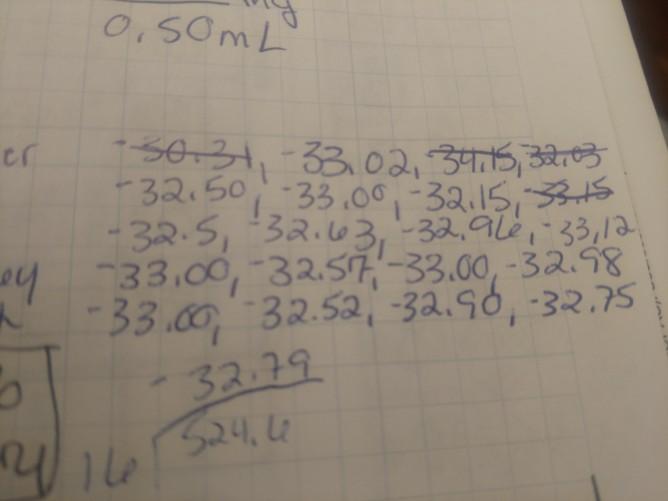 mg
0.50mL
er -30.31, -33.02, -34.15, -32.03
-32.50, -33.00, -32.15, -33.15
-32.5, -32.63, -32.96, -33.12
ey -33.00, -32.57, -33.00, -32.98
-33.00, -32.52, -32.90, -32.75
-32.79
16 524.6